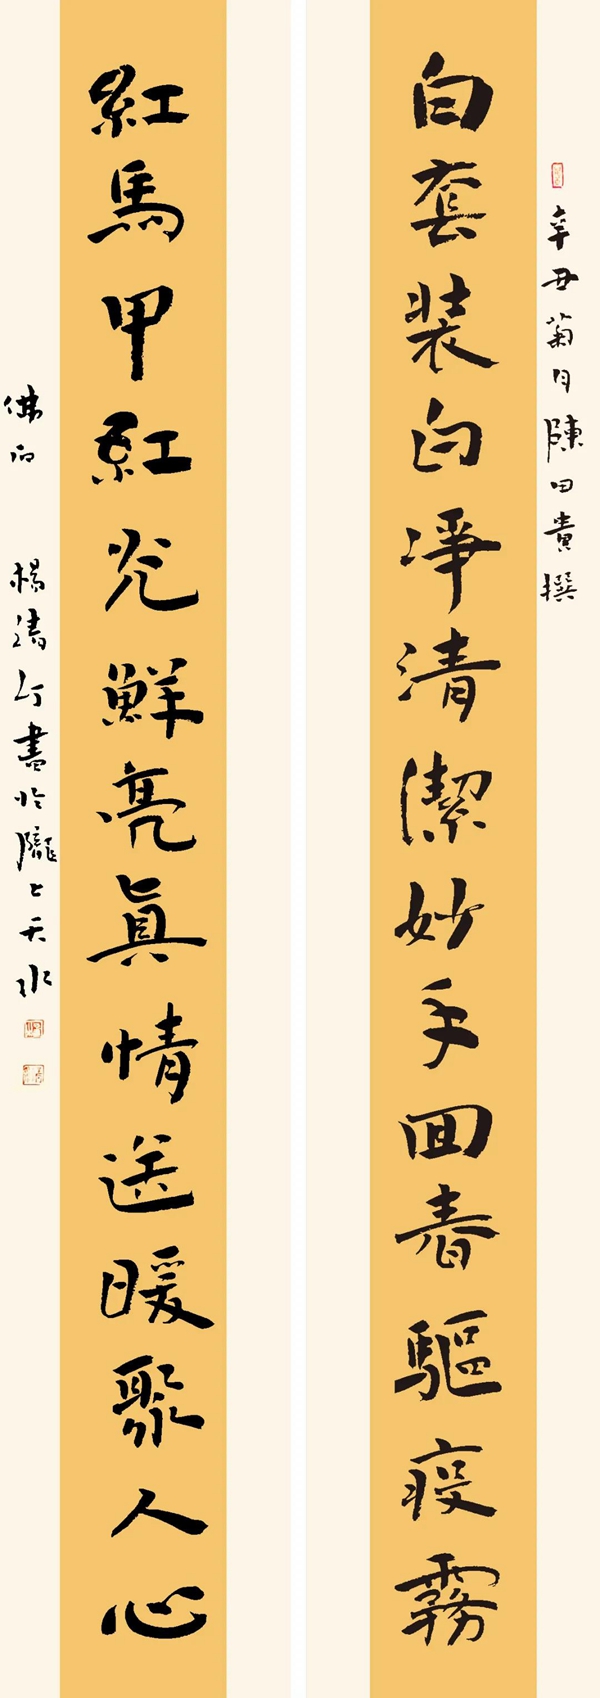 辛丑菊月陳田貴撰
白套装白凈清潔妙手回春驅疫霧
紅馬甲紅光鮮亮眞情送暖聚人心
楊清汀書於隴上天水